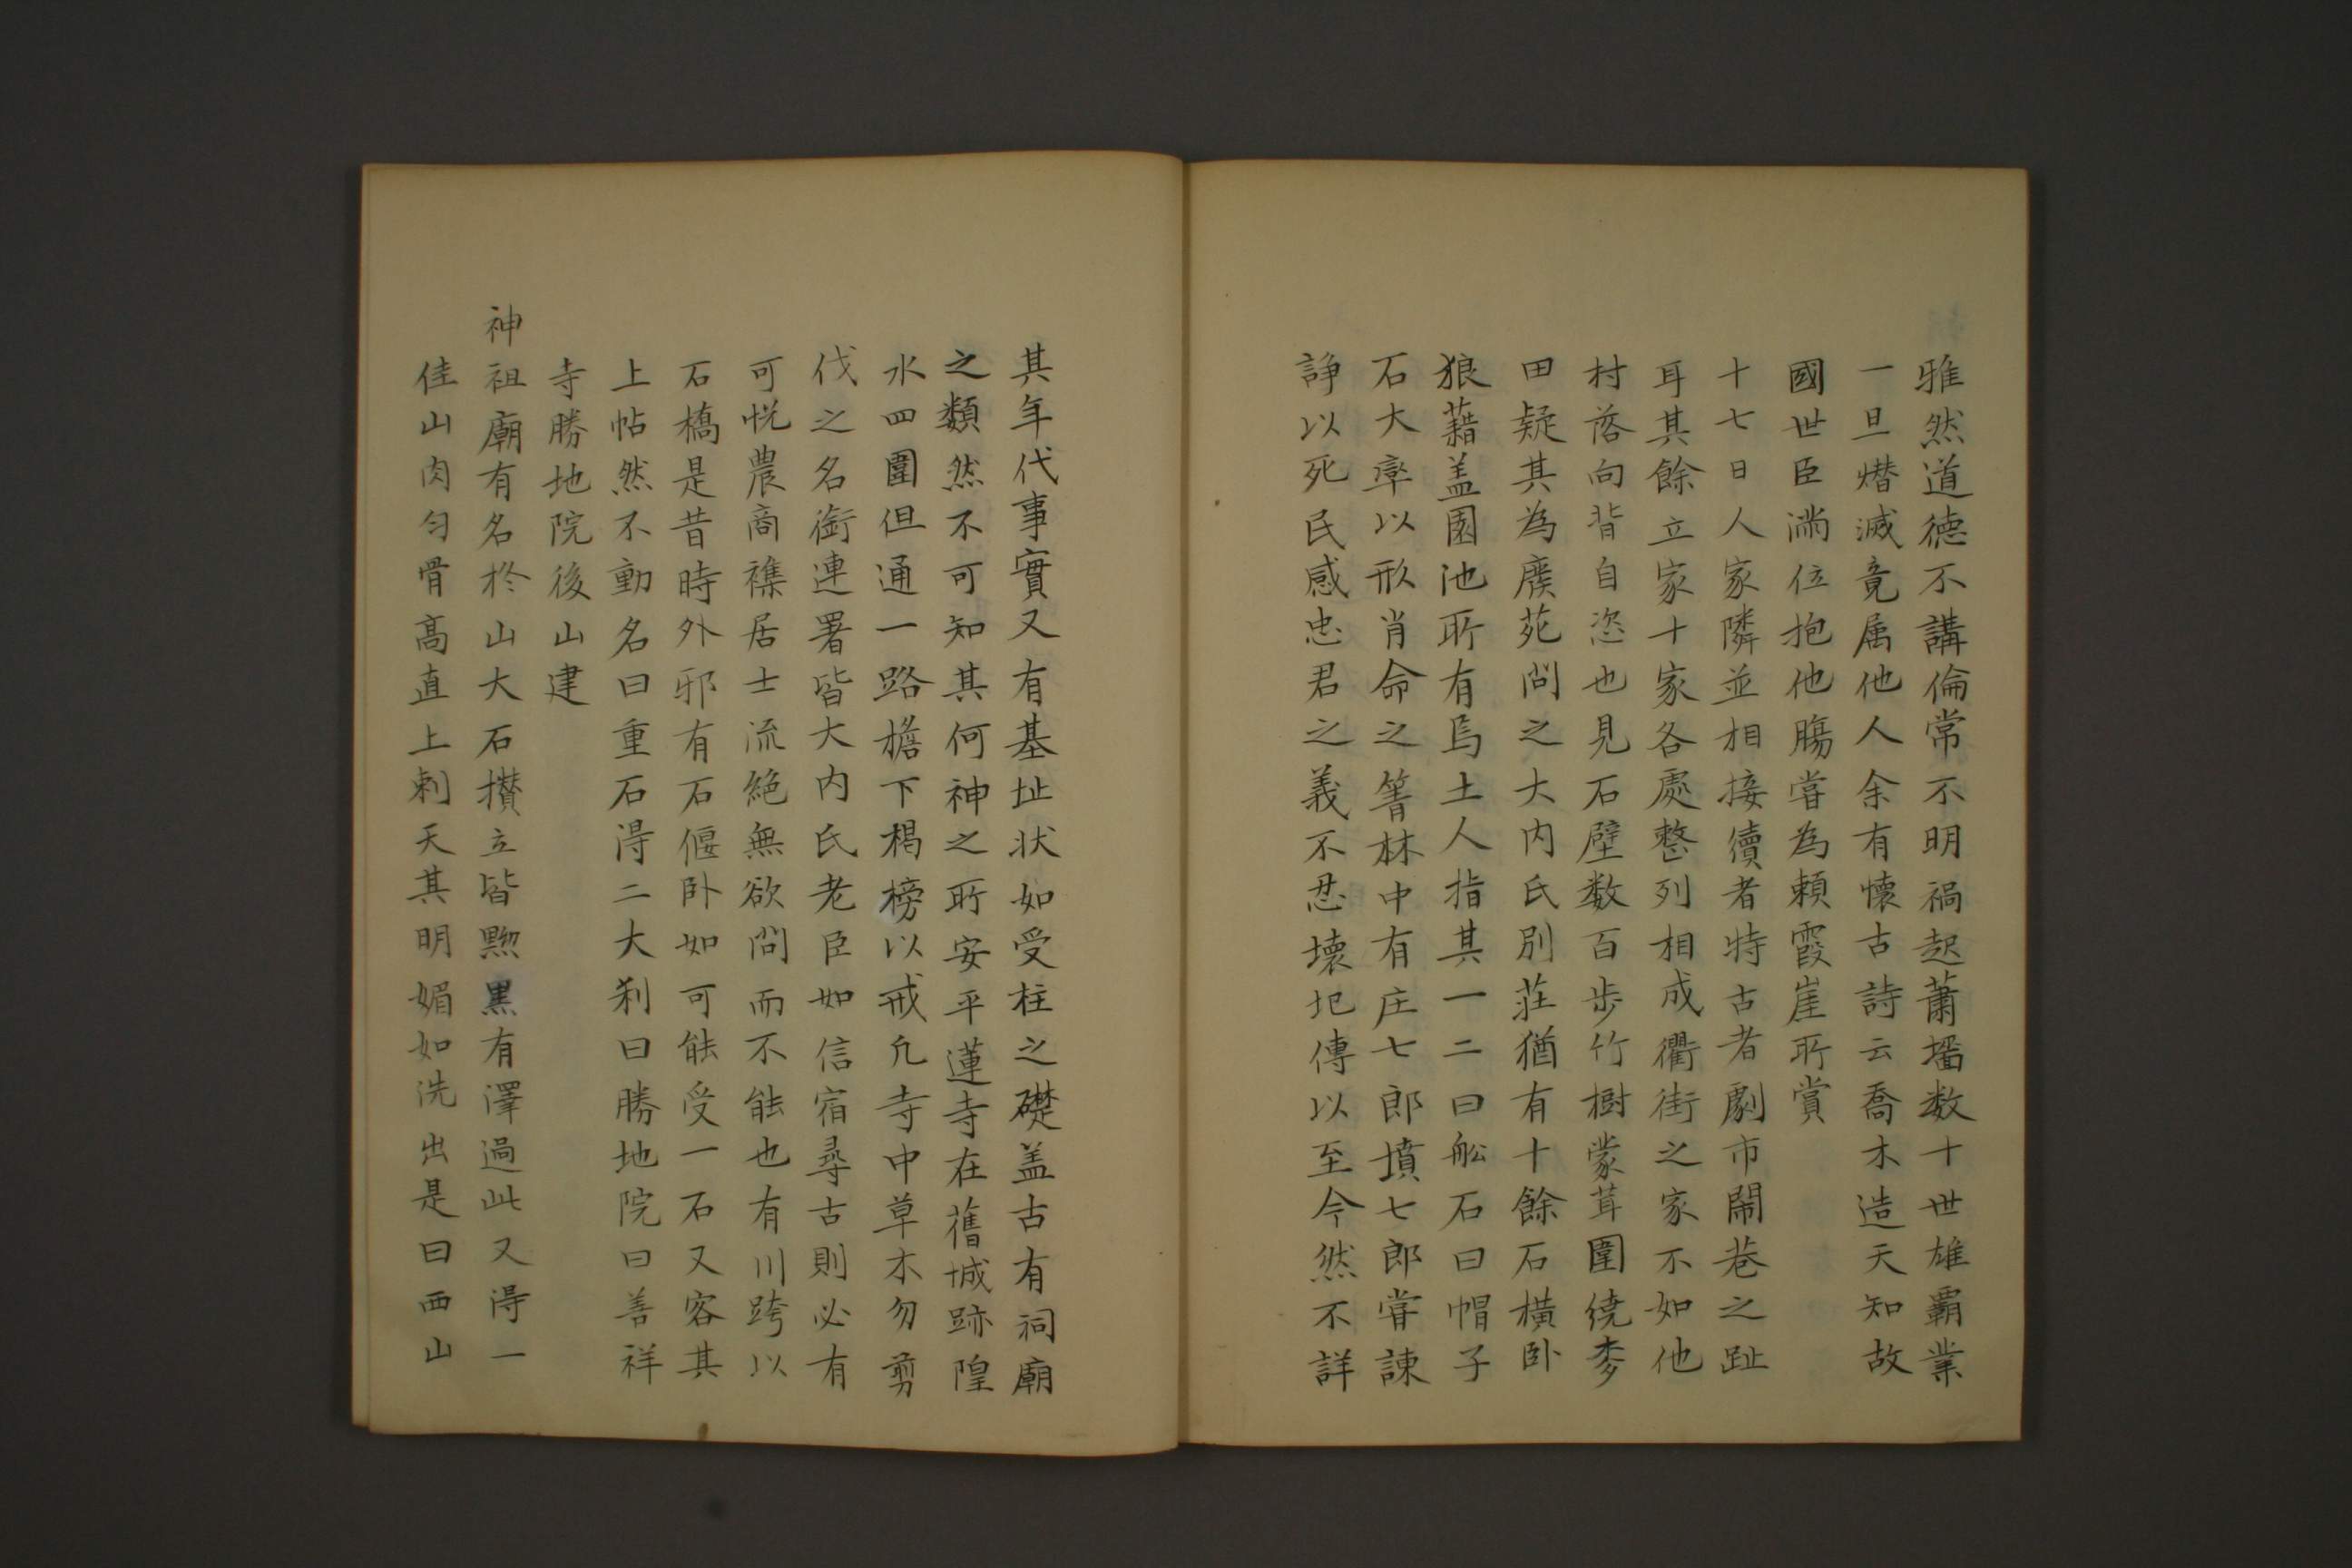 雅然道德不講倫常不明禍起蕭墻数十世雄覇業
一旦熸滅竟属他人余有懷古詩云喬木造天知故
國世臣満位抱他膓嘗為頼霞崖所賞
十七日人家隣並相接續者特古者劇市閙巷之趾
耳其餘立家十家各處整列相成衢街之家不如他
村落向背自恣也見石壁数百歩竹樹蒙茸圍繞麥
田疑其為廢苑問之大内氏別荘猶有十餘石橫卧
狼藉盖園池所有焉土人指其一二曰舩石曰帽子
石大率以形肖命之箐林中有庄七郎墳七郎嘗諌
諍以死民感忠君之義不忍壞圮傳以至今然不詳
其年代事實又有基址状如受柱之礎盖古有祠廟
之類然不可知其何神之所安平蓮寺在舊城跡隍
水四圍但通一路檐下楬榜以戒凢寺中草木勿剪
伐之名銜連署皆大内氏老臣如信宿尋古則必有
可悦農商襍居士流絶無欲問而不能也有川跨以
石橋是昔時外邪有石偃卧如可能受一石又容其
上帖然不動名曰重石得二大刹曰勝地院曰善祥
寺勝地院後山建
神祖廟有名於山大石攅立皆黙黒有澤過此又得一
佳山肉匀骨髙直上刺天其明媚如洗出是曰西山